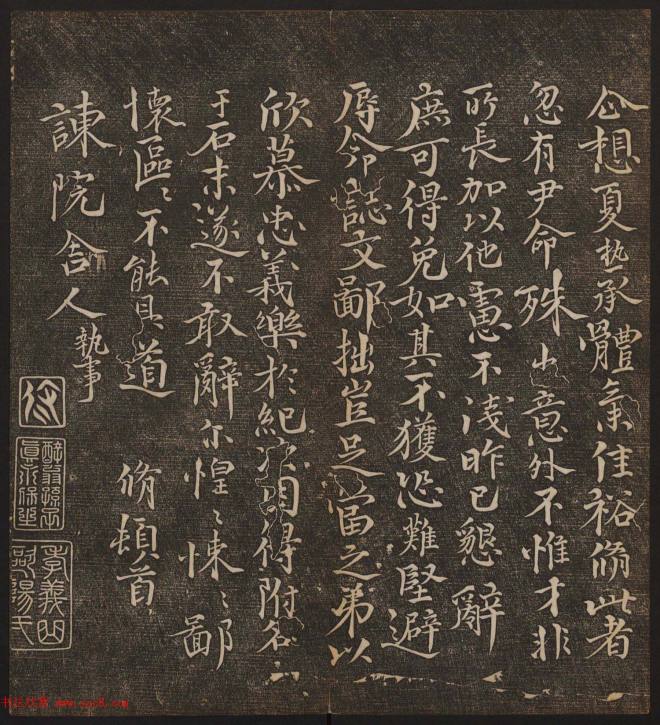 企想夏热承體氣佳裕脩此者
忽有尹命殊出意外不惟才非
所長加以他慮不淺昨已懇辭
庶可得免如其不獲恐難堅避
辱命誌文鄙拙豈足當之弟以
欣慕忠義樂於紀次因得附名
于石未遂不敢辭尔惶々悚々鄙
懷區々不能具道 脩頓首
諫院舍人執事
书法欣赏 www.yac8.com